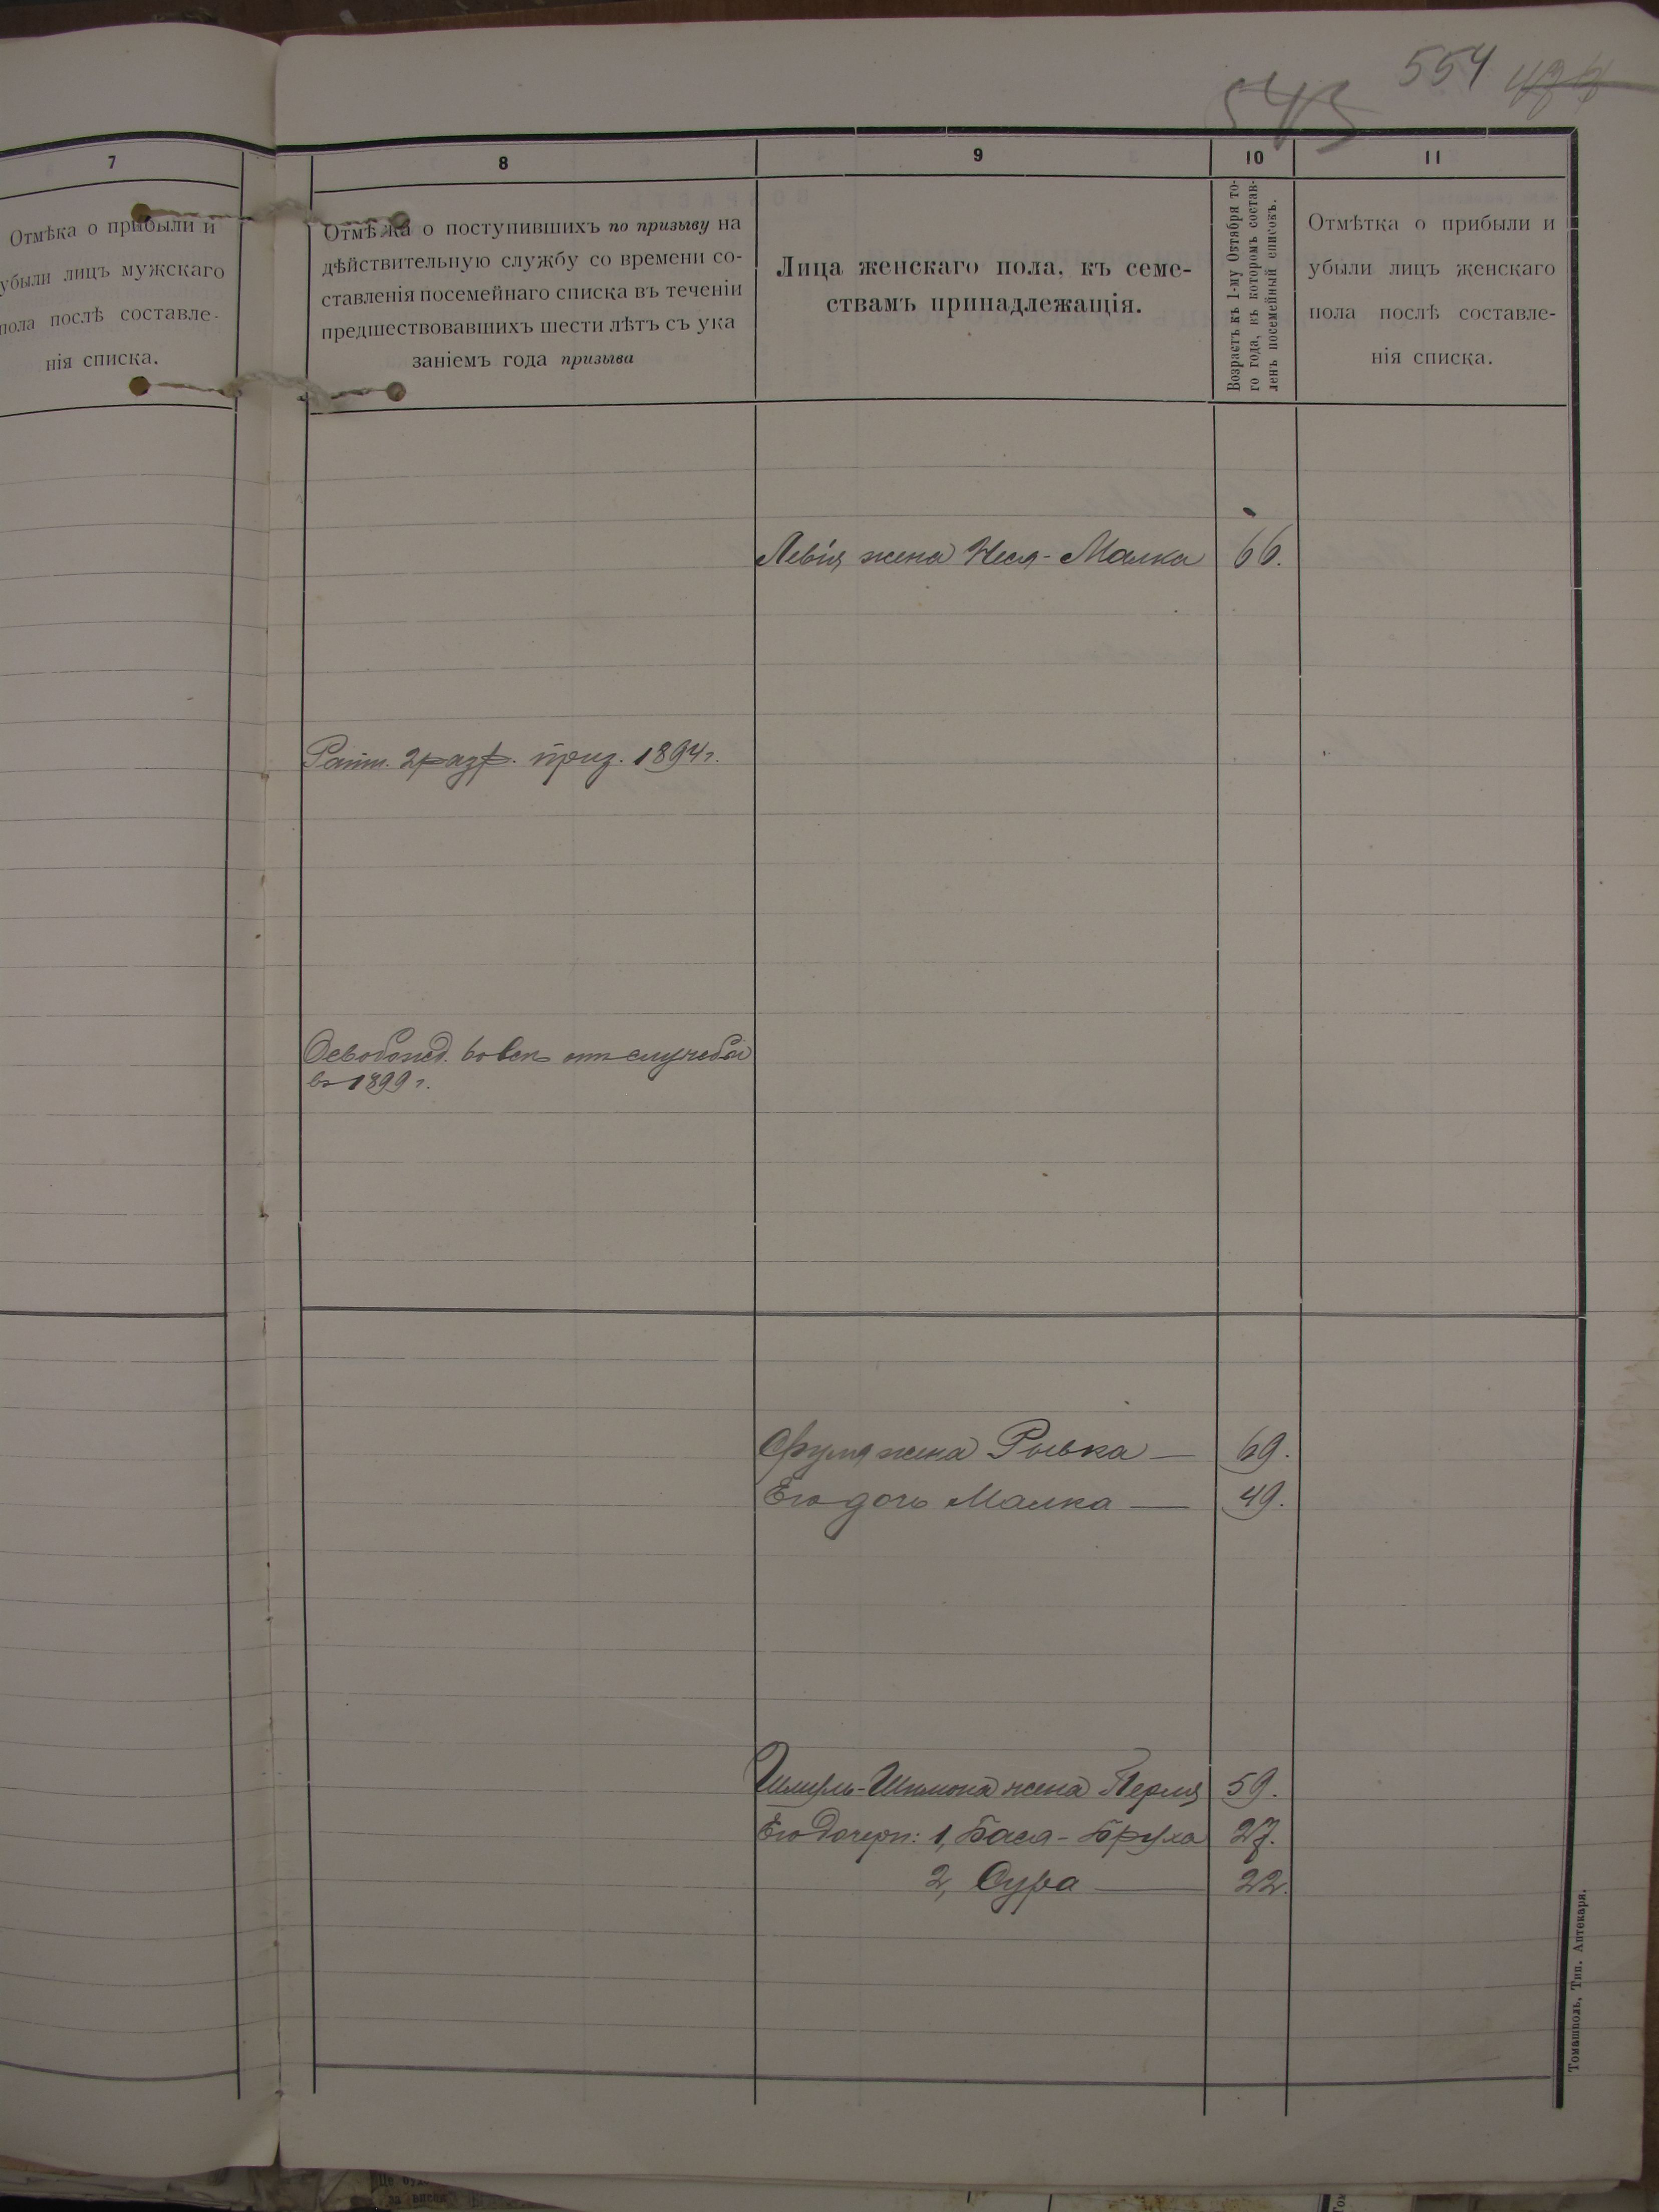 554
543
7
Отмѣка о прибыли и
убыли лицъ мужскаго
пола послѣ составле-
нія списка.
8
Отмѣтка о поступившихъ по призыву на
дѣйствительную службу со времени со-
ставленія посемейнаго списка въ теченіи
предшествовавшихъ шести лѣтъ съ ука
заніемъ года призыва
9
Лица женскаго пола, къ семе-
ствамъ принадлежащія.
10
Возрастъ къ 1-му Октября то-
го года, въ которомъ состав-
ленъ посемейный списокъ.
11
Отмѣтка о прибыли и
убыли лицъ женскаго
пола послѣ составле-
нія списка.
Левія жена Неся-Малка 66.
Ратн. 2 разр. приз. 1894 г.
Освобожд. вовсе от службы
въ 1899 г.
Фрумя жена Рывка — 69.
Его дочь Малка — 49.
Шмуль-Шимона жена Перля 59.
Его дочери: 1, Бася-Бруха 27.
2, Сура — 22.
Томашполь, Тип. Аптекаря.